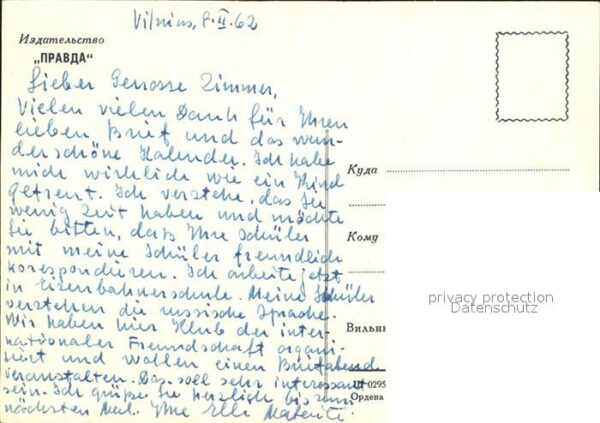 Vilnius, 8.II.62
Издательство
„ПРАВДА“
Lieber Genosse Zimmer,
Vielen vielen Dank für Ihren
lieben Brief und das wun-
derschöne Kalender. Ich habe
mich wirklich wie ein Kind
gefreut. Ich verstehe, das Sie
wenig Zeit haben und möchte
Sie bitten, daß Ihre Schüler
mit meine Schüler freundlich
korespondieren. Ich arbeite jetzt
in Eisenbahnerschule. Meine Schüler
verstehen die russische Sprache.
Wir haben hier Klub der inter-
nationaler Freundschaft organi-
siert und wollen einen Briefabend
veranstalten. Das soll sehr interessant
sein. Ich grüße Sie herzlich bis zum
nächsten Mal. Ihre Elli
Куда
Кому
privacy protection
Datenschutz
Вильн
0295
Ордена